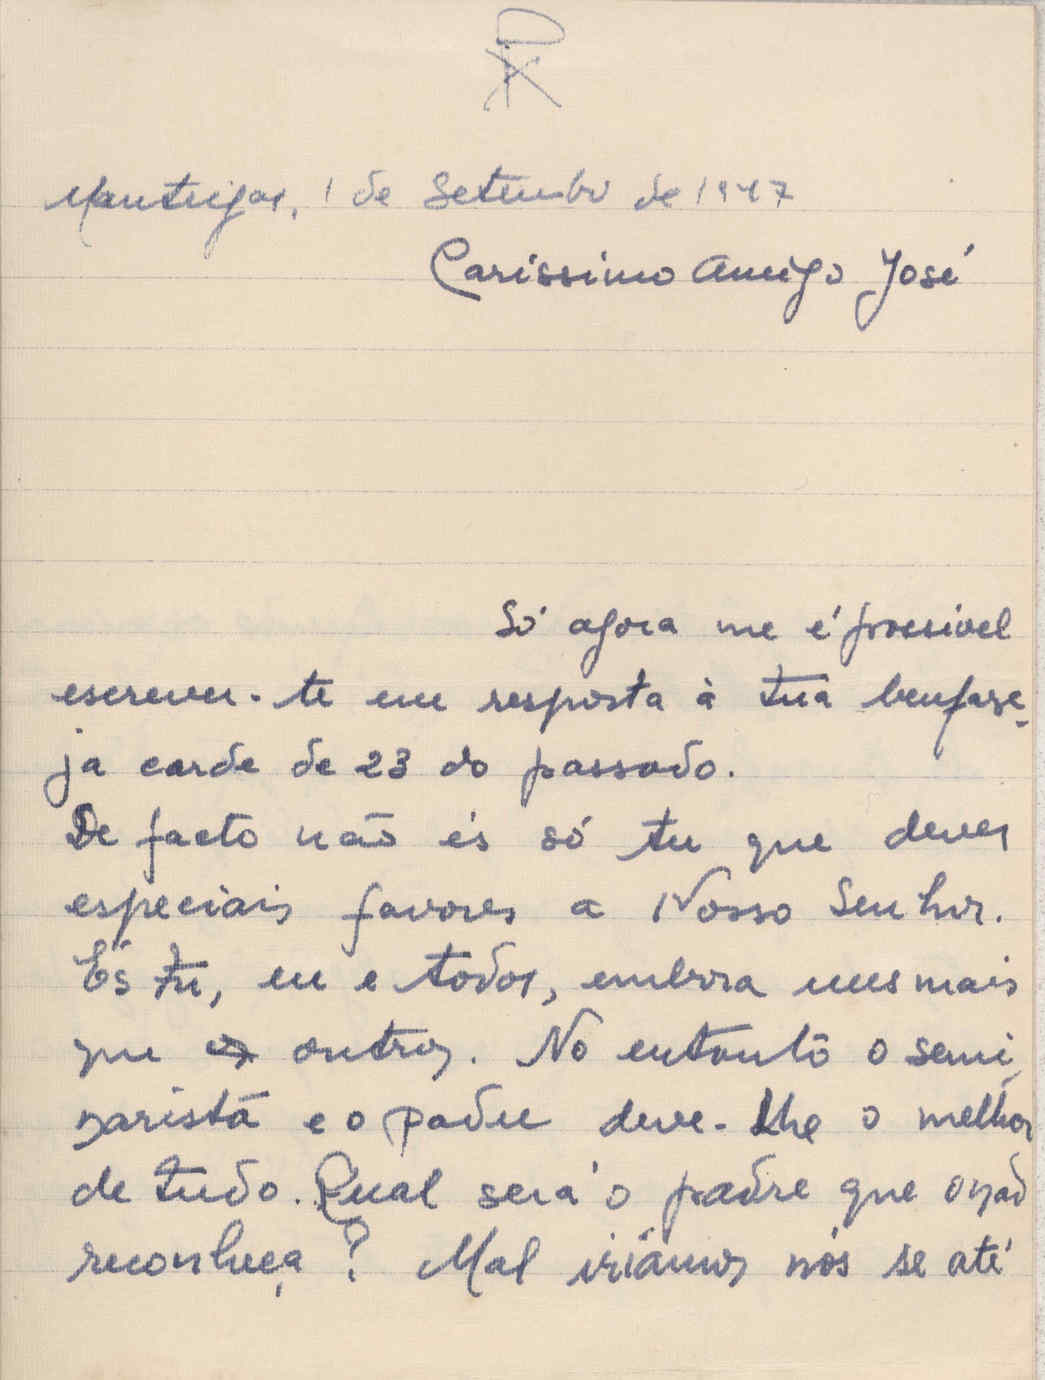 Manteigas, 1 de Setembro de 1947
Caríssimo Amigo José
Só agora me é possivel
escrever-te em resposta à tua benfaze-
ja carde de 23 do passado.
De facto não és só tu que deves
especiais favores a Nosso Senhor.
És tu, eu e todos, embora uns mais
que os outros. No entanto o semi-
narista e o padre deve-Lhe o melhor
de tudo. Qual será o padre que o não
reconheça? Mal iríamos nós se até